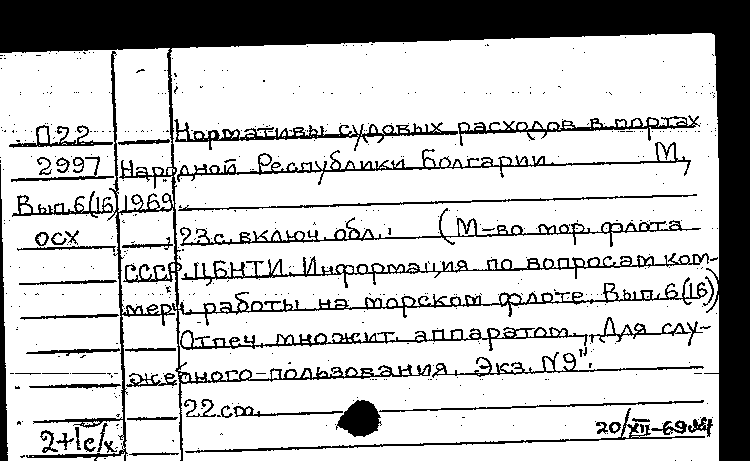 П22 Нормативы судовых расходов в портах
2997 Народной Республики Болгарии. М.,
Вып.6(16) 1969.
ОСХ 23с. включ. обл. (М-во мор. флота
СССР. ЦБНТИ. Информация по вопросам ком-
мерч. работы на морском флоте. Вып.6(16))
Отпеч. множит. аппаратом. „Для слу-
жебного пользования. Экз. №9".
22 cm.
2+1е/х 20/XII-69